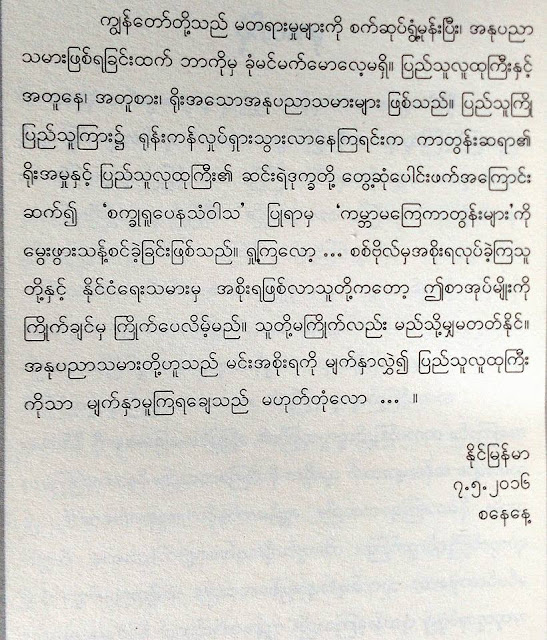 ကျွန်တော်တို့သည် မတရားမှုများကို စက်ဆုပ်ရွံ့မုန်းပြီး၊ အနုပညာ
သမားဖြစ်ရခြင်းထက် ဘာကိုမှ ခုံမင်မက်မောလေ့မရှိ။ ပြည်သူလူထုကြီးနှင့်
အတူနေ၊ အတူစား၊ ရိုးအသောအနုပညာသမားများ ဖြစ်သည်။ ပြည်သူကြို
ပြည်သူကြား၌ ရုန်းကန်လှုပ်ရှားသွားလာနေကြရင်းက ကာတွန်းဆရာ၏
ရိုးအမှုနှင့် ပြည်သူလူထုကြီး၏ ဆင်းရဲဒုက္ခတို့ တွေ့ဆုံပေါင်းဖက်အကြောင်း
ဆက်၍ ‘စက္ခုရူပေနသံဝါသ’ ပြုရာမှ ‘ကမ္ဘာမကြေကာတွန်းများ’ကို
မွေးဖွားသန့်စင်ခဲ့ခြင်းဖြစ်သည်။ ရှုကြလော့ ... စစ်ဗိုလ်မှအစိုးရလုပ်ခဲ့ကြသူ
တို့နှင့် နိုင်ငံရေးသမားမှ အစိုးရဖြစ်လာသူတို့ကတော့ ဤစာအုပ်မျိုးကို
ကြိုက်ချင်မှ ကြိုက်ပေလိမ့်မည်။ သူတို့မကြိုက်လည်း မည်သို့မျှမတတ်နိုင်။
အနုပညာသမားတို့ဟူသည် မင်းအစိုးရကို မျက်နှာလွှဲ၍ ပြည်သူလူထုကြီး
ကိုသာ မျက်နှာမူကြရချေသည် မဟုတ်တုံလော ... ။
နိုင်မြန်မာ
၇.၅.၂၀၁၆
စနေနေ့